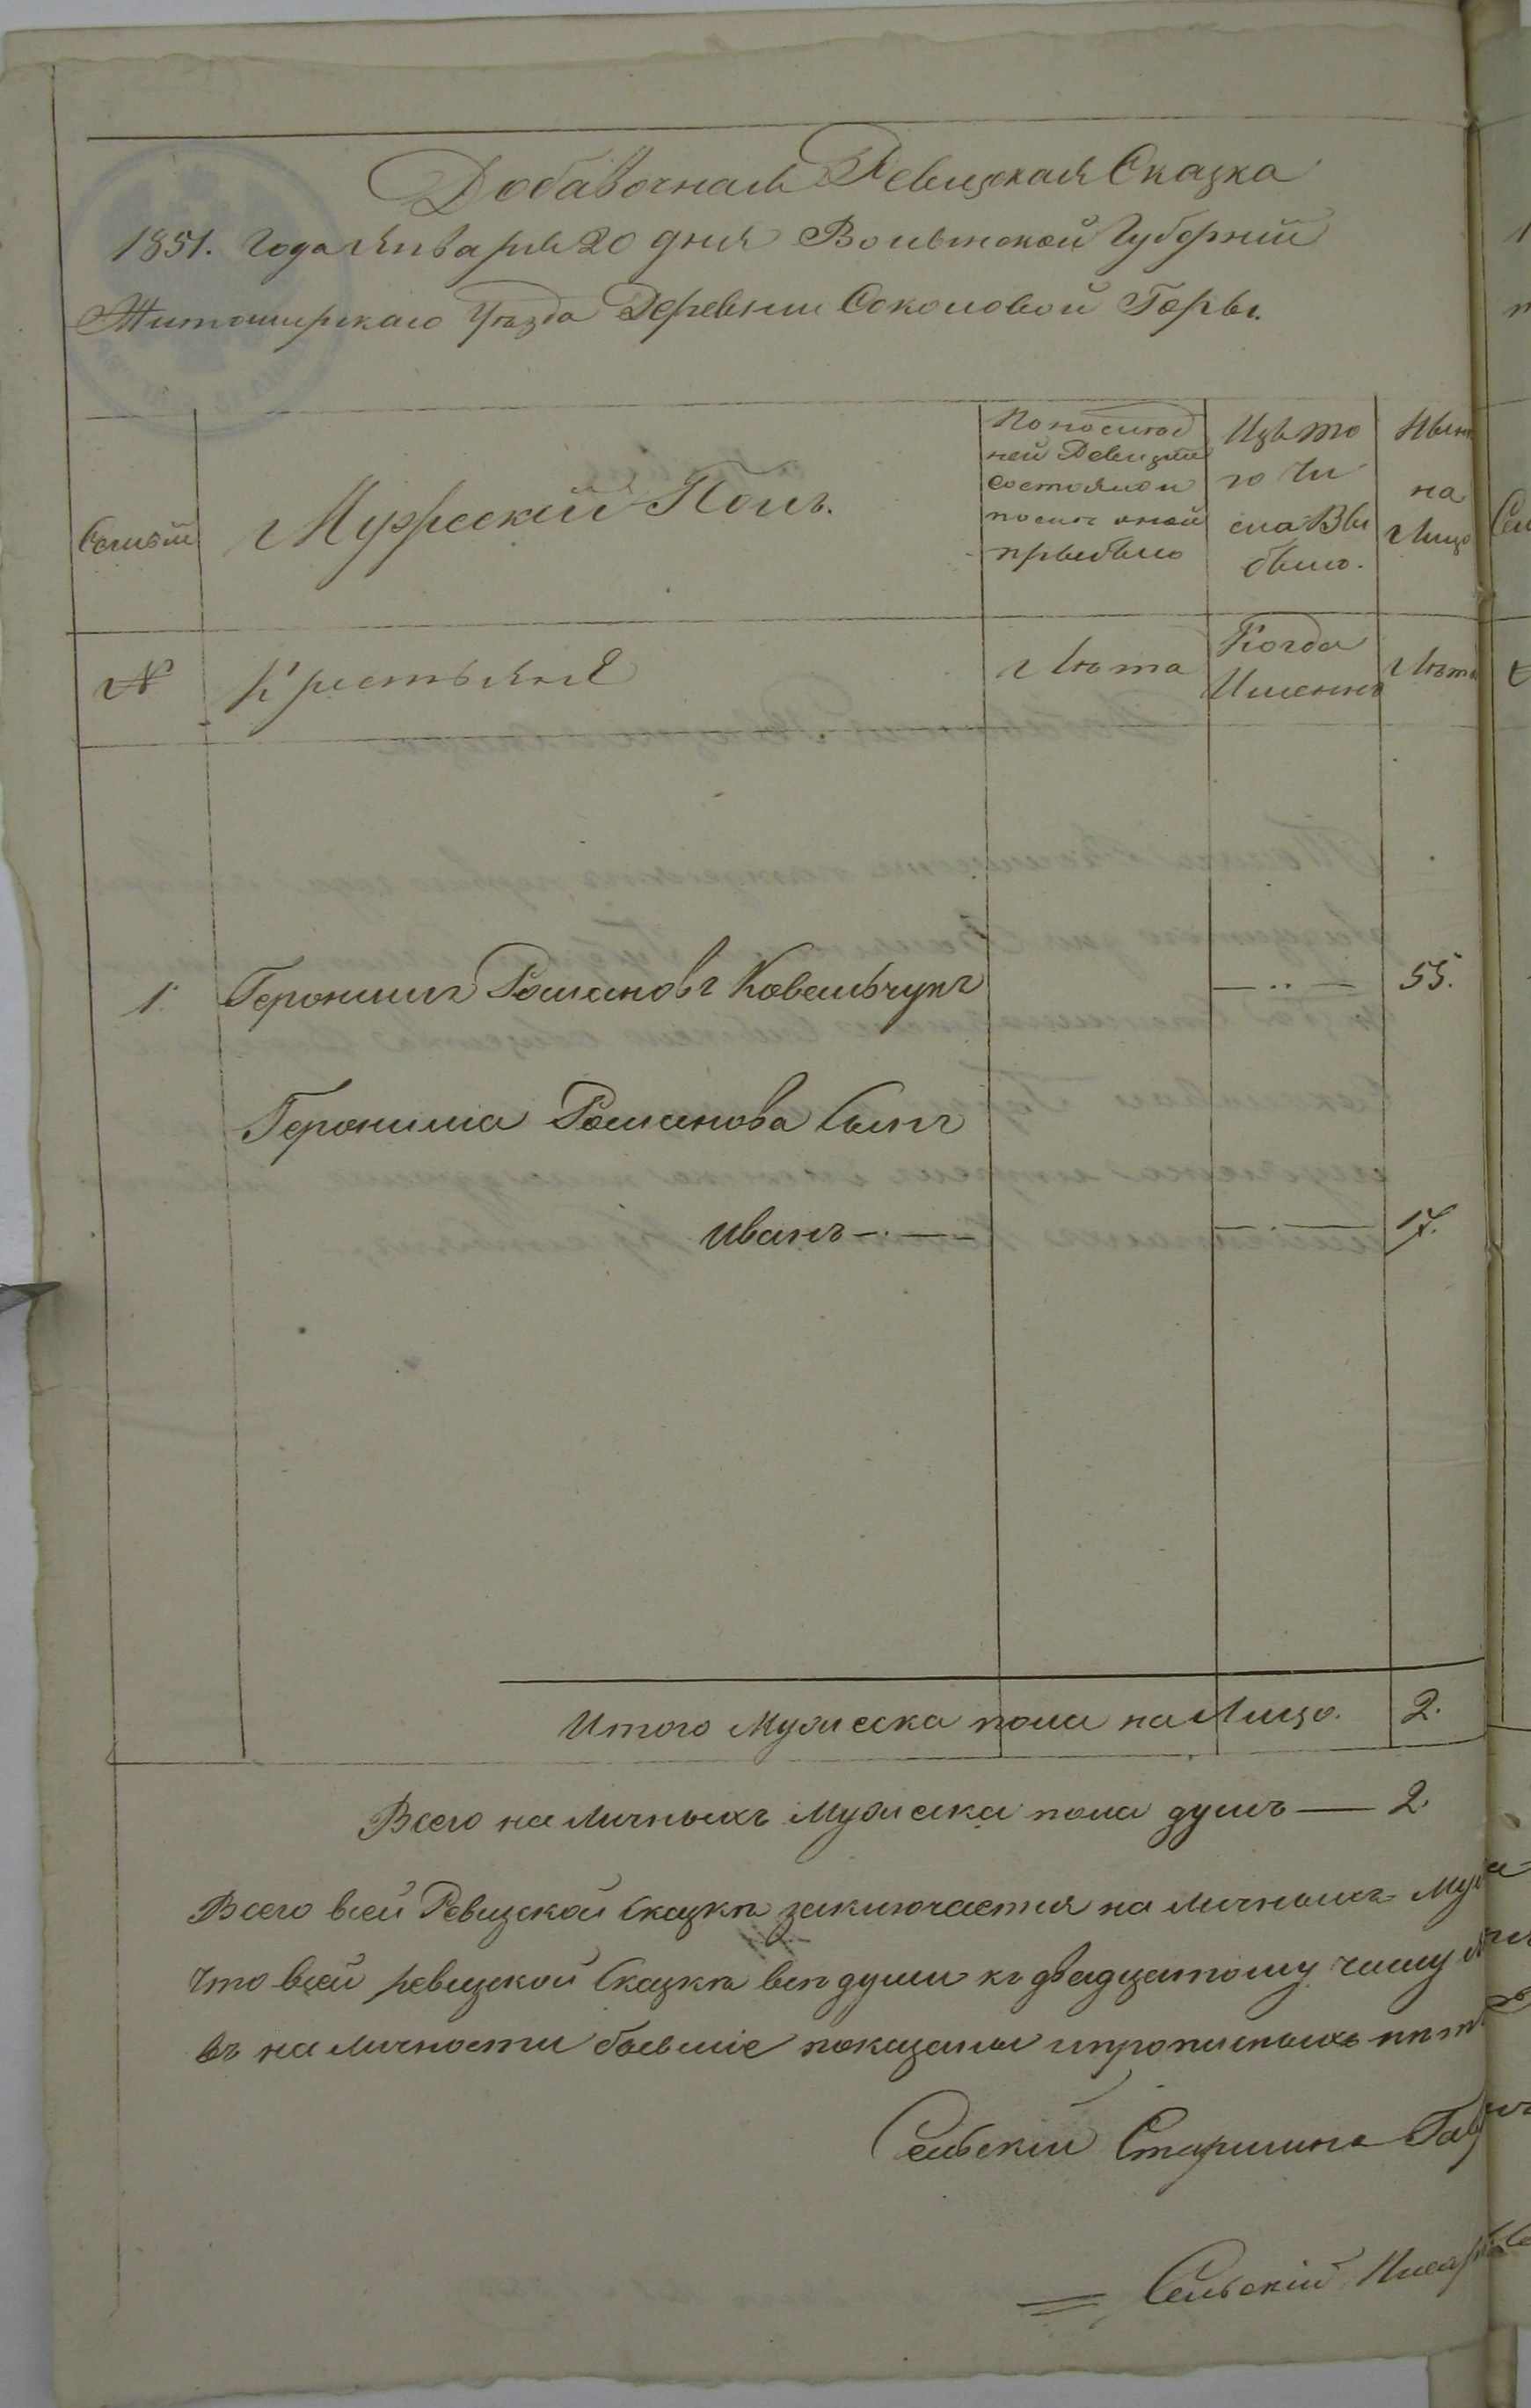 Добавочная Ревизская Сказка
1851. Года Января 20 дня Волынской Губернiи
Житомирскаго Уѣзда Деревни Соколовой Горы.
Семьи
Мужескiй Полъ.
По послѣд
ней Ревизiи
состояло и
послѣ оной
прыбыло
Изъ то
го Чи
сла Вы
было.
Нынѣ
на
Лицо
№
Крестьяня
Лѣта
Когда
Именно
Лѣта
1. Геронимъ Романовъ Ковальчукъ — .. — 55.
Геронима Романова Сынъ
Иванъ — . — — . — 17.
Итого Мужеска пола на Лицо. 2.
Всего на Личныхъ Мужеска пола душъ — 2.
Всего в сей Ревизской Сказкѣ заключается на Личныхъ Муж
Что в сей ревизской Сказкѣ всѣ души къ двадцатому числу
въ на Личности бывшiе показаны и прописныхъ нѣтъ
Сельскiй Старшина
Сельскiй Писарь